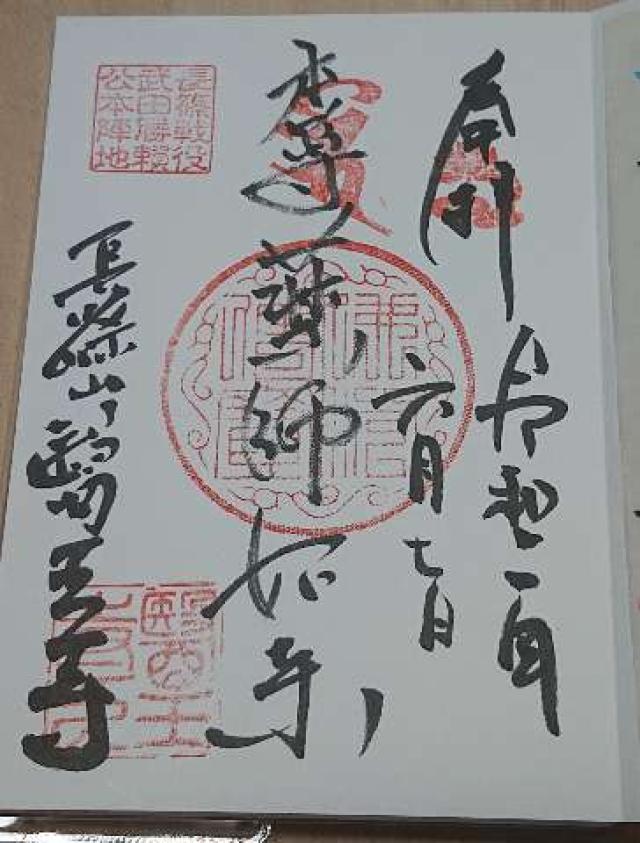 奉拝
令和一年
六月七日
本尊薬師如来
長篠山醫王寺
長篠戦役
武田勝頼
公本陣地